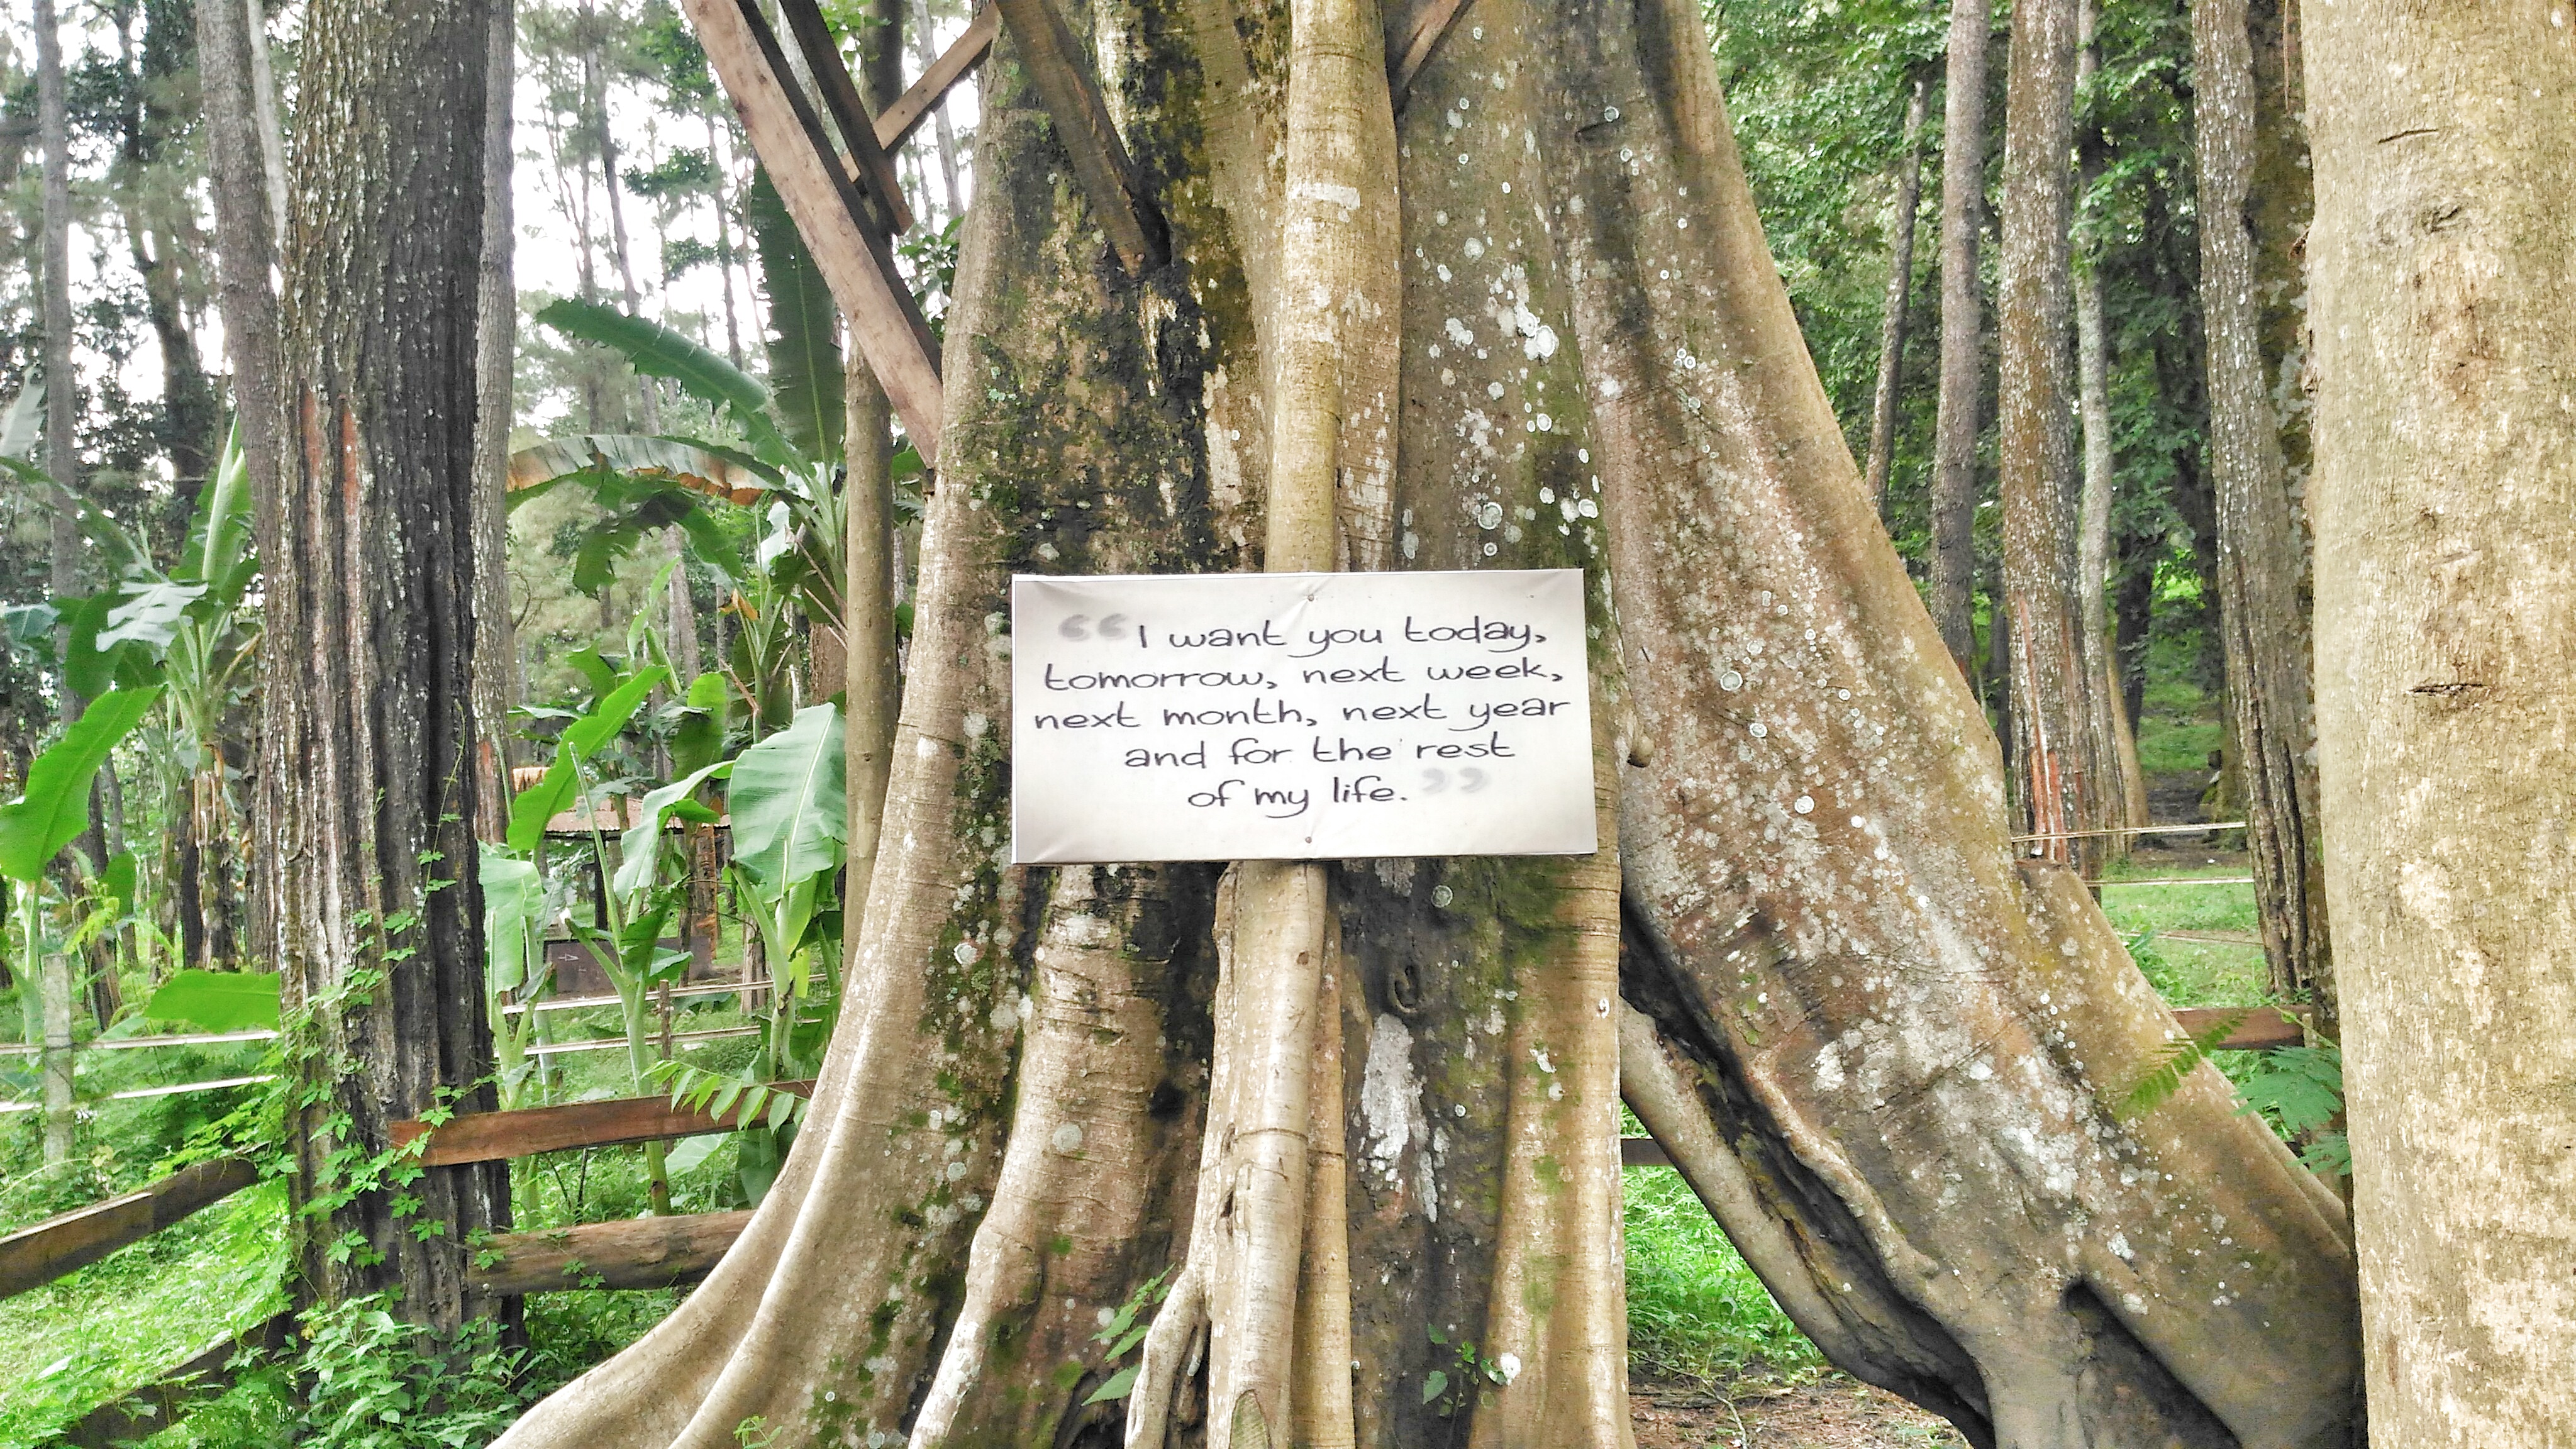 “I want you today,
tomorrow, next week,
next month, next year
and for the rest
of my life.”